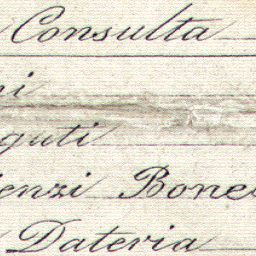 Consulta
ni
guti
ienzi Bone
Dateria